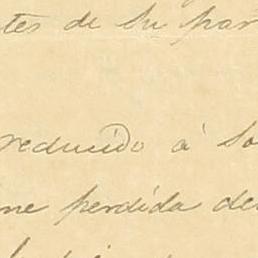 tes de su par
reducido á so
me perdida de